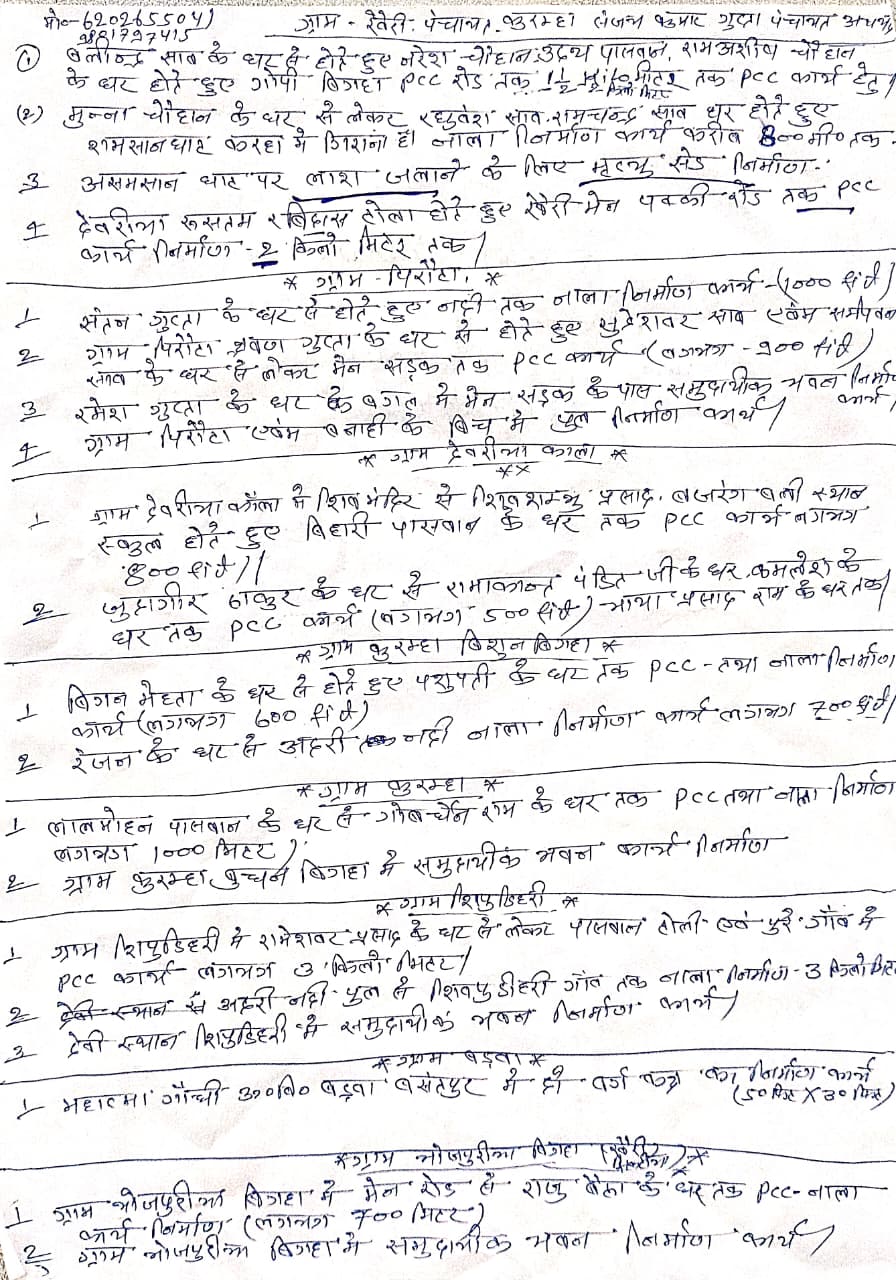 मो०-6202655041 ग्राम - रेवैरी. पंचायत. कुरम्हा संजय कुमार गुप्ता पंचायत अध्यक्ष
9881797415
① बलीन्द्र साव के घर से होते हुए नरेश चौहान, उदय पासवान, रामअशीष चौहान
के घर होते हुए गोपी बिगहा PCC रोड तक 1½ किलो मिटर तक PCC कार्य हेतु।
(२) मुन्ना चौहान के घर से लेकर रघुवंश साव रामचन्द्र साव घर होते हुए
शमसानघाट करहा में गिराना है। नाला निर्माण कार्य करीब 800 मी० तक.
3 असमसान घाट पर लाश जलाने के लिए मृत्यु सेड निर्माण.
4 देवरीया रूसतम रबिदास टोला होते हुए रेवैरी मेन पक्की रोड तक PCC
कार्य निर्माण - 2 किलो मिटर तक।
* ग्राम - पिरौटा. *
1 संतन गुप्ता के घर से होते हुए नदी तक नाला निर्माण कार्य - (1000 फीट)
2 ग्राम पिरौटा श्रवण गुप्ता के घर से होते हुए सुद्रेशवर साव एवंम
साव के घर से लेकर मेन सड़क तक PCC कार्य (लगभग - 900 फीट)
3 रमेश गुप्ता के घर के बगल में मेन सड़क के पास समुदायीक भवन निर्माण
कार्य।
4 ग्राम पिरौटा एवंम बनाही के बिच में पुल निर्माण कार्य।
* ग्राम देवरीया काला *
**
1 ग्राम देवरीया काला में शिव मंदिर से शिवशम्भु प्रसाद. बजरंग बली स्थान
स्कुल होते हुए बिहारी पासवान के घर तक PCC कार्य लगभग
800 फीट।।
2 जुहागीर ठाकुर के घर से रामाकान्त पंडित जी के घर. कमलेश के
घर तक PCC कार्य (लगभग 500 फीट) प्रसाद राम के घर तक।
* ग्राम कुरम्हा बिशुन बिगहा *
1 बिगन मेहता के घर से होते हुए पशुपती के घर तक PCC - तथा नाला निर्माण
कार्य (लगभग 600 फीट)
2 रंजन के घर से अदरी नदी नाला निर्माण कार्य लगभग 700 फीट।
* ग्राम कुरम्हा *
1 लालमोहन पासवान के घर से गोबर्धन राम के घर तक PCC तथा नाला निर्माण
लगभग 1000 मिटर)
2 ग्राम कुरम्हा बुधन बिगहा में समुदायीक भवन कार्य निर्माण
* ग्राम शिपुडिहरी *
1 ग्राम शिपुडिहरी में रामेशवर प्रसाद के घर से लेकर पासवान टोली एवं पुरे गाँव में
PCC कार्य लगभग 3 किलो मिटर।
2 देवी स्थान से अदरी नदी पुल से शिवपुडीहरी गाँव तक नाला निर्माण - 3 किलो मिटर
3 देवी स्थान शिपुडिहरी में समुदायीक भवन निर्माण कार्य।
* ग्राम बड़वा *
1 महात्मा गाँन्धी उ० वि० बड़वा बसंतपुर में दो वर्ग कक्ष का निर्माण कार्य
(50 फिट X 30 फिट)
* ग्राम भोजपुरीया बिगहा *
1 ग्राम भोजपुरीया बिगहा में मेन रोड से राजु बैठा के घर तक PCC - नाला
कार्य निर्माण (लगभग 700 मिटर)
2 ग्राम भोजपुरीया बिगहा में समुदायीक भवन निर्माण कार्य।